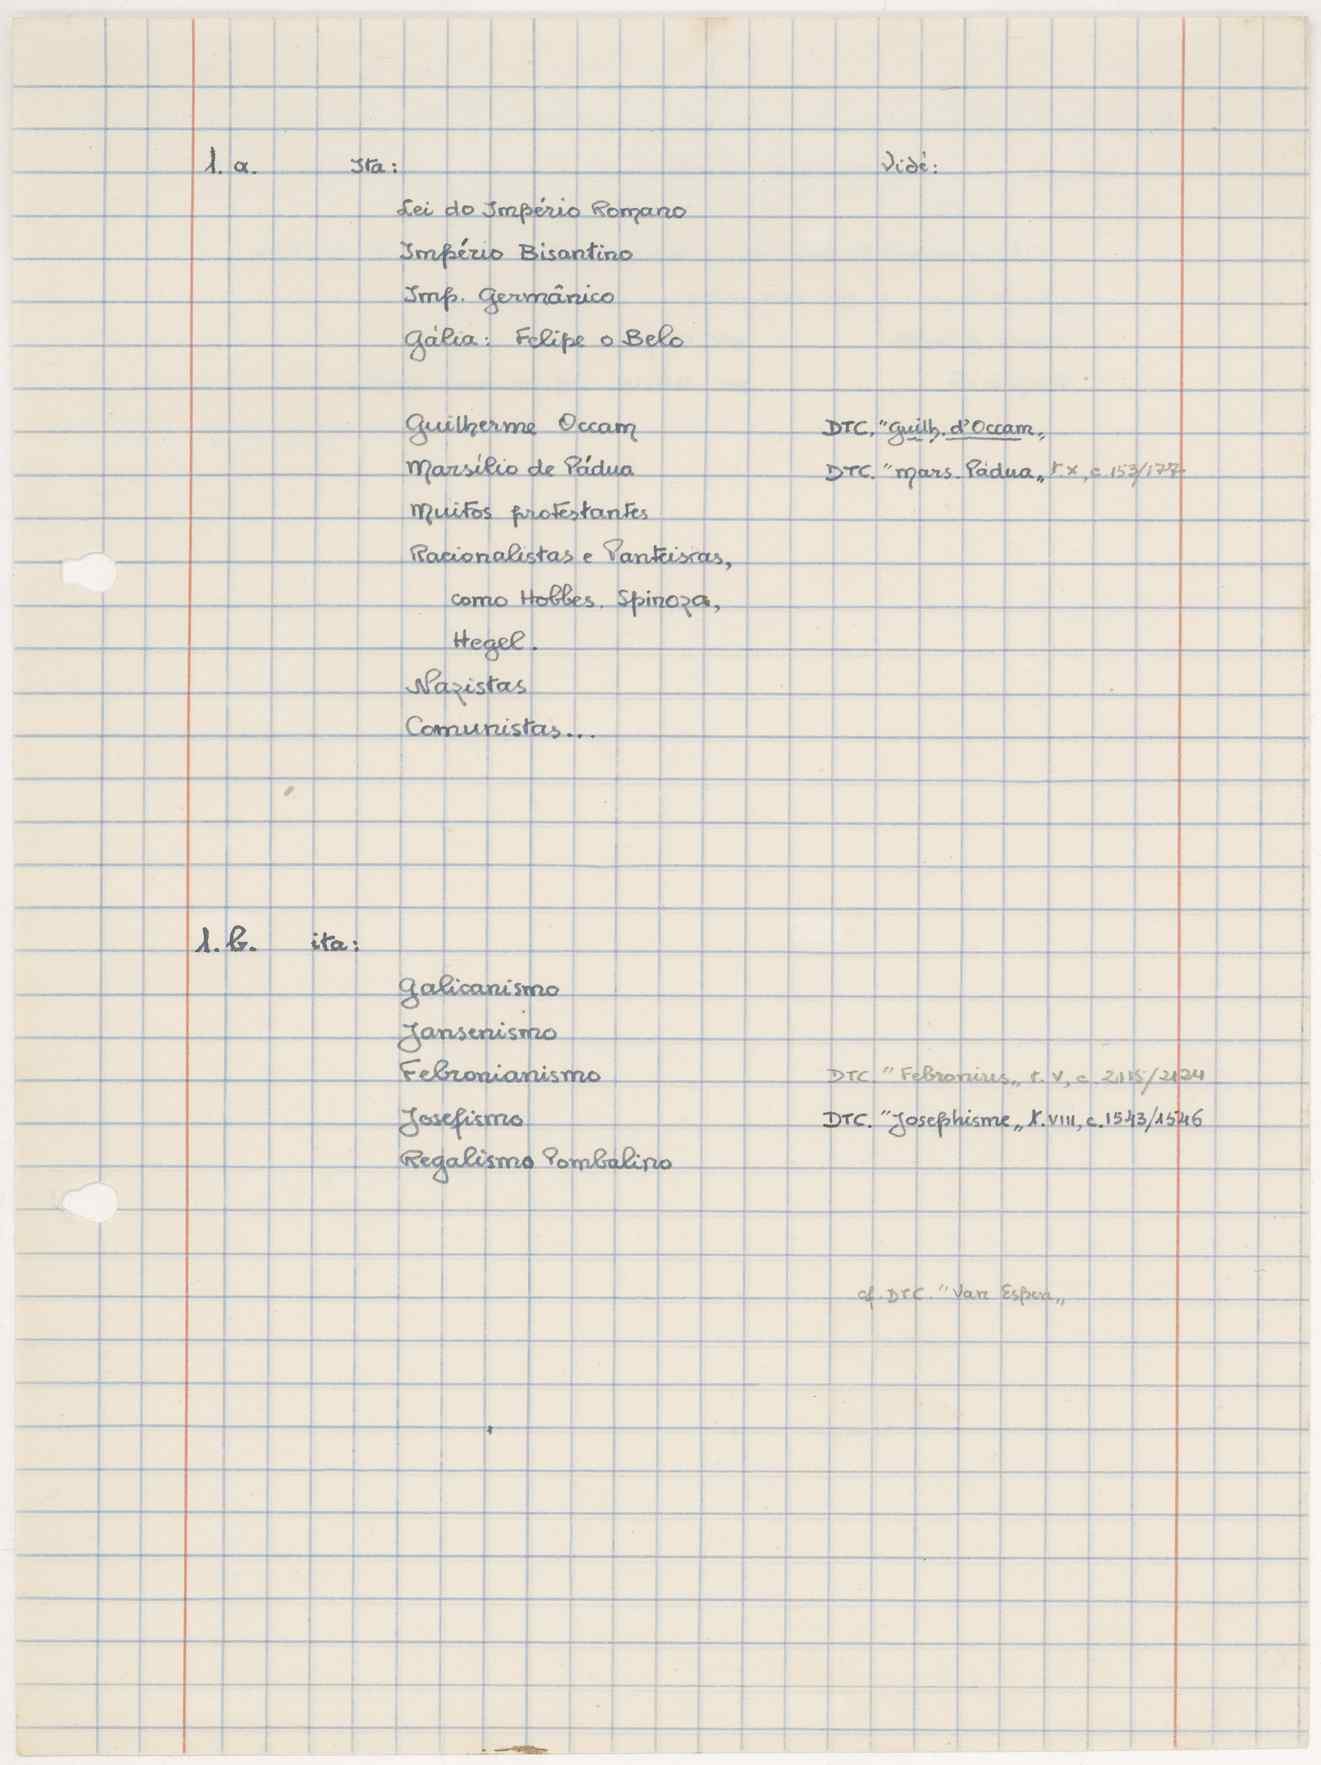 1. a. Ita: Vide:
Lei do Império Romano
Império Bisantino
Imp. Germânico
Gália: Felipe o Belo
Guilherme Occam DTC. "Guilh. d'Occam„
Marsílio de Pádua DTC. "Mars. Pádua„ t. X, c. 153/177
Muitos protestantes
Racionalistas e Panteistas,
como Hobbes. Spinoza,
Hegel.
Nazistas
Comunistas...
1. b. ita:
Galicanismo
Jansenismo
Febronianismo DTC. "Febronius„ t. V, c. 2115/2124
Josefismo DTC. "Josephisme„ t. VIII, c. 1543/1546
Regalismo Pombalino
cf. DTC. "Van Espen„